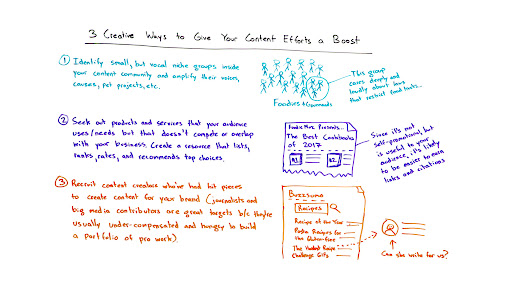 3 Creative Ways to Give Your Content Efforts a Boost
1 Identify small, but vocal niche groups inside
your content community and amplify their voices,
causes, pet projects, etc.
Foodies + Gourmands
This group
cares deeply and
loudly about laws
that restrict food trucks...
2 Seek out products and services that your audience
uses/needs but that doesn't compete or overlap
with your business. Create a resource that lists,
ranks, rates, and recommends top choices.
Foodie Hive Presents...
The Best Cookbooks
of 2017
#1
#2
Since it's not
self-promotional, but
is useful to your
audience, it's likely
to be easier to earn
links and citations
3 Recruit content creators who've had hit pieces
to create content for your brand (journalists and
big media contributors are great targets b/c they're
usually under-compensated and hungry to build
a portfolio of pro work)
Buzzsumo
Recipes
Recipe of the Year
Pasta Recipes for
the Gluten-free
The Hardest Recipe
Challenge Gifts
Can she write for us?